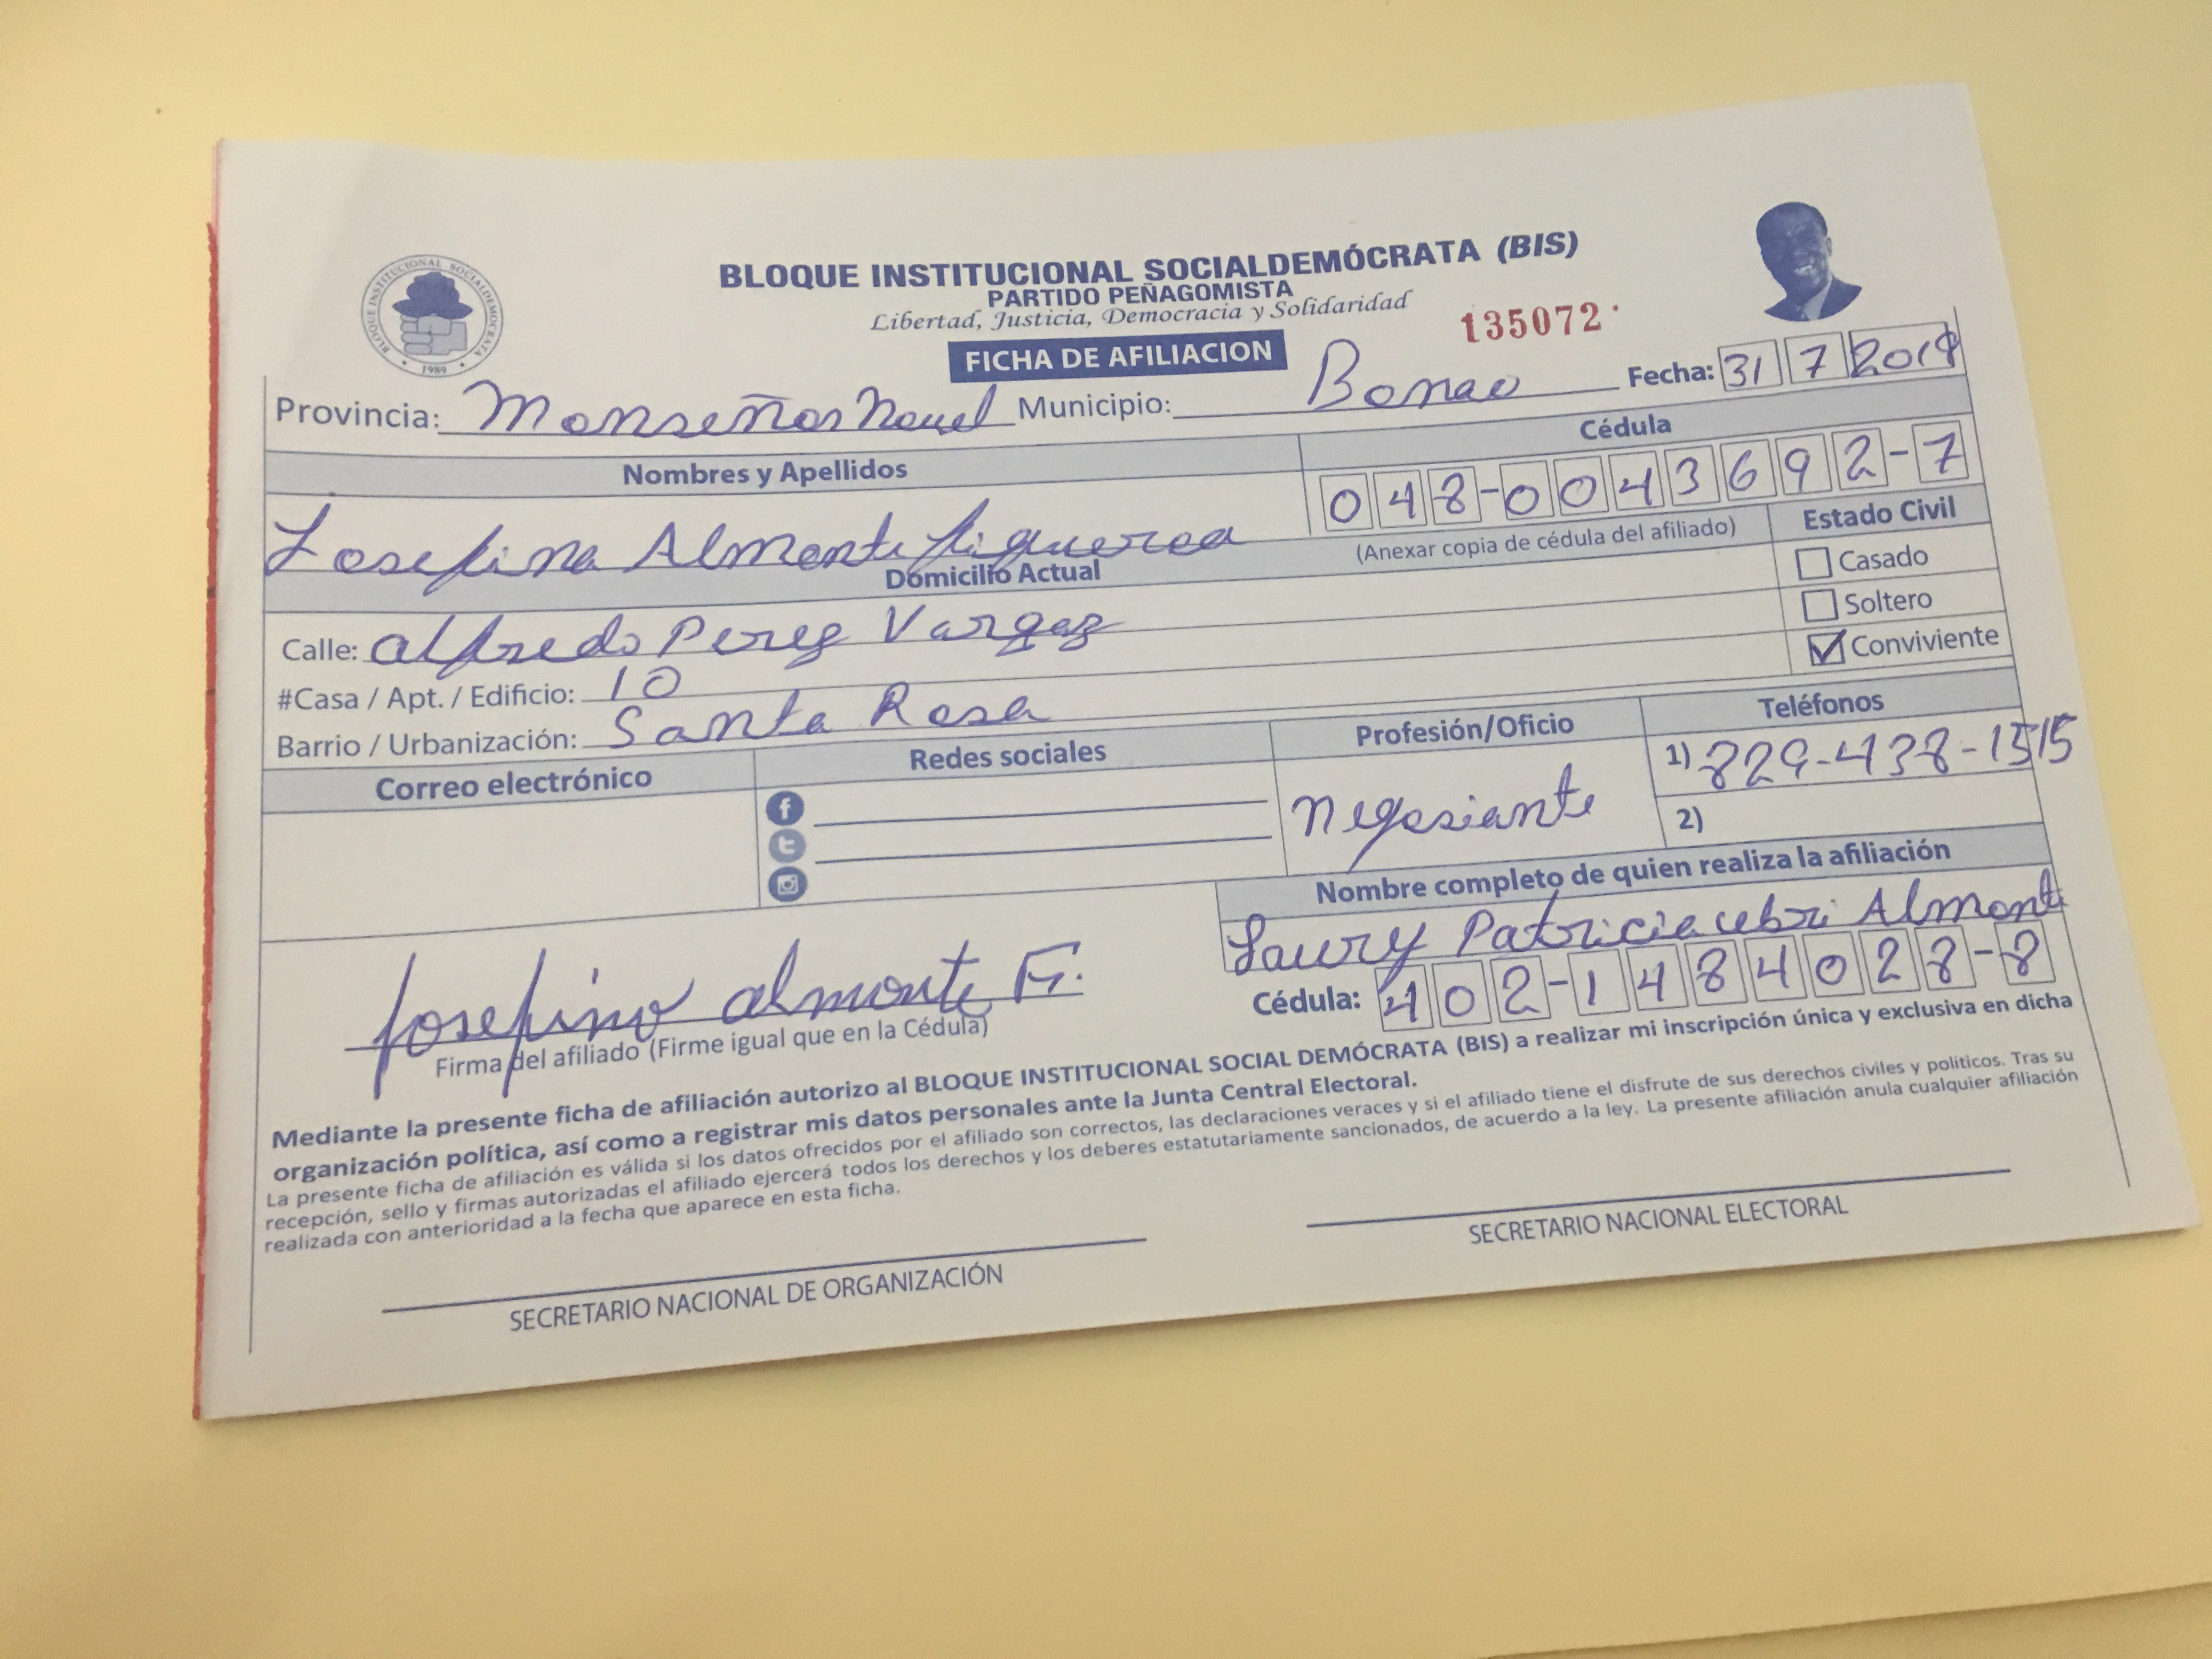 BLOQUE INSTITUCIONAL SOCIALDEMÓCRATA (BIS)
PARTIDO PEÑAGOMISTA
Libertad, Justicia, Democracia y Solidaridad
135072
BLOQUE INSTITUCIONAL SOCIALDEMOCRATA
1989
FICHA DE AFILIACION
Provincia: Monseños Nouel Municipio: Bonao Fecha: 31 7
Nombres y Apellidos Cédula
Josefina Almonte figueroa 048-0043692-7
(Anexar copia de cédula del afiliado) Estado Civil
Domicilio Actual
Casado
Calle: alfredo Perez Vargaz Soltero
#Casa / Apt. / Edificio: 10 Conviviente
Barrio / Urbanización: Santa Rosa
Correo electrónico Redes sociales Profesión/Oficio Teléfonos
negosiante 1) 829-438-1515
2)
Nombre completo de quien realiza la afiliación
Laury Patricia Almonte
Cédula: 402-1484028-8
Josefina almonte F.
Firma del afiliado (Firme igual que en la Cédula)
Mediante la presente ficha de afiliación autorizo al BLOQUE INSTITUCIONAL SOCIAL DEMÓCRATA (BIS) a realizar mi inscripción única y exclusiva en dicha
organización política, así como a registrar mis datos personales ante la Junta Central Electoral.
La presente ficha de afiliación es válida si los datos ofrecidos por el afiliado son correctos, las declaraciones veraces y si el afiliado tiene el disfrute de sus derechos civiles y politicos. Tras su
recepción, sello y firmas autorizadas el afiliado ejercerá todos los derechos y los deberes estatutariamente sancionados, de acuerdo a la ley. La presente afiliación anula cualquier afiliación
realizada con anterioridad a la fecha que aparece en esta ficha.
SECRETARIO NACIONAL DE ORGANIZACIÓN
SECRETARIO NACIONAL ELECTORAL